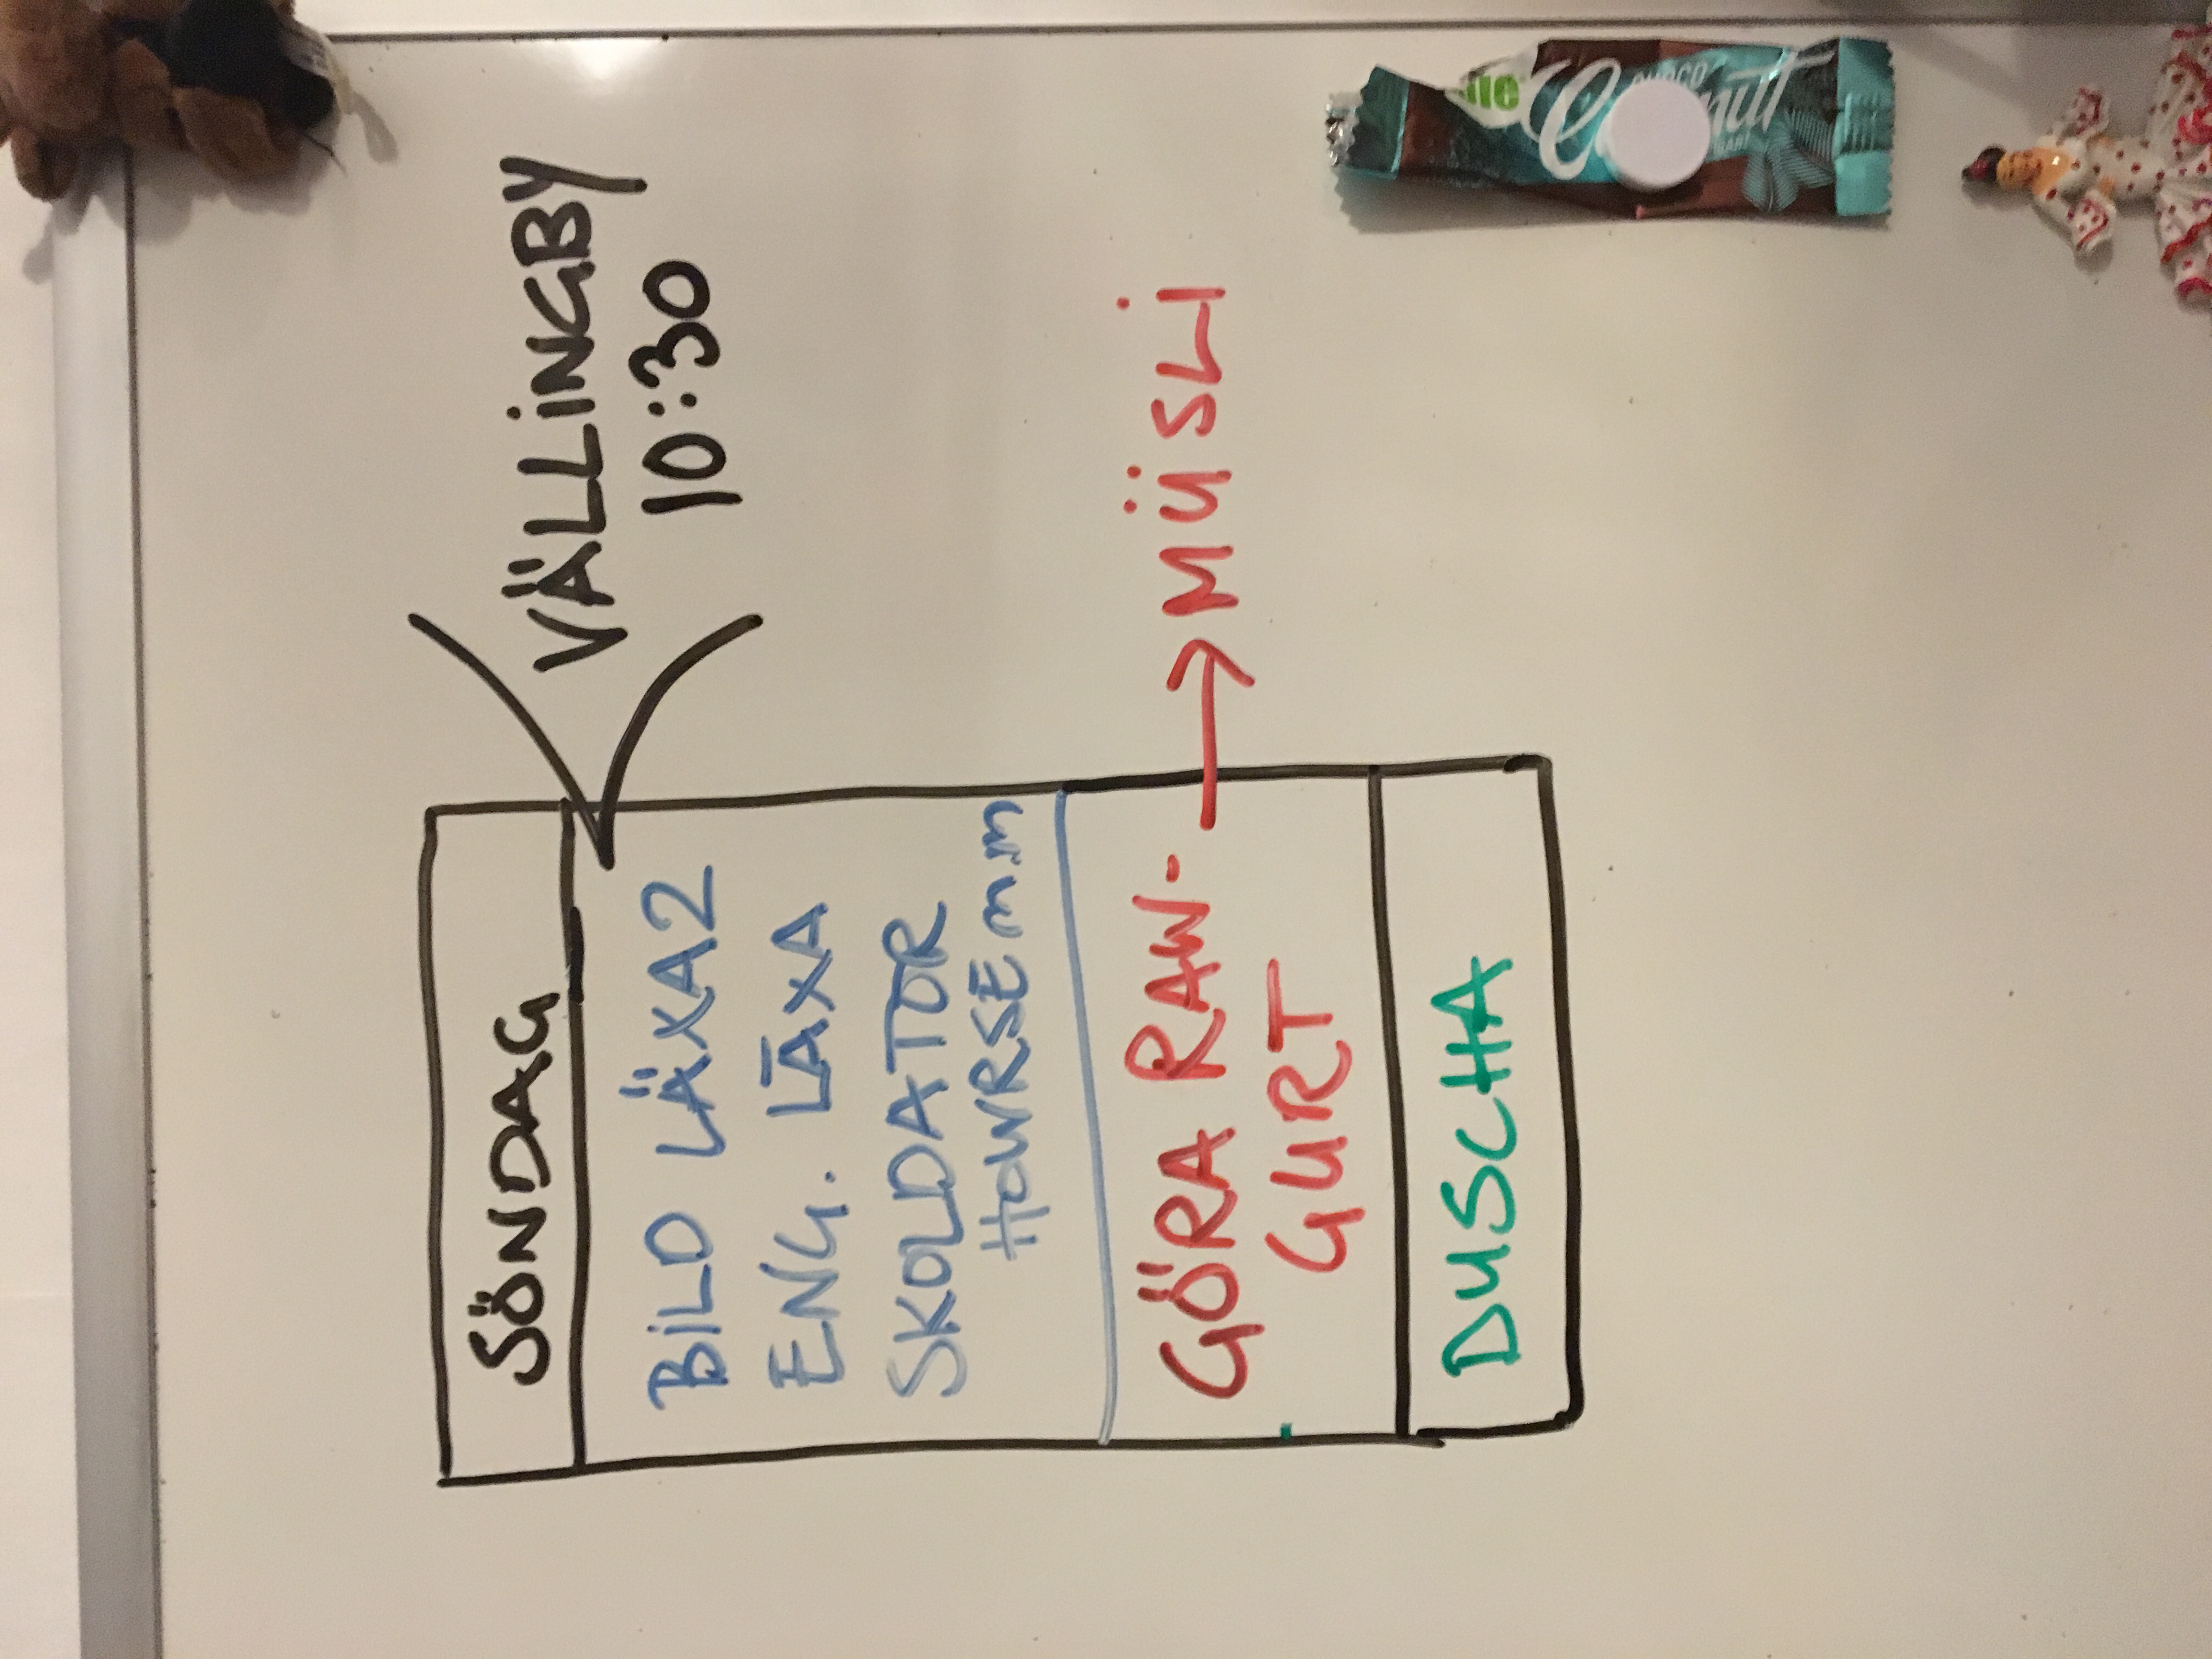 SÖNDAG
VÄLLINGBY
10:30
BILD LÄXA2
ENG. LÄXA
SKOLDATOR
HOWRSE m.m
GÖRA RAW- → MÜSLI
GURT
DUSCHA
CHOCO